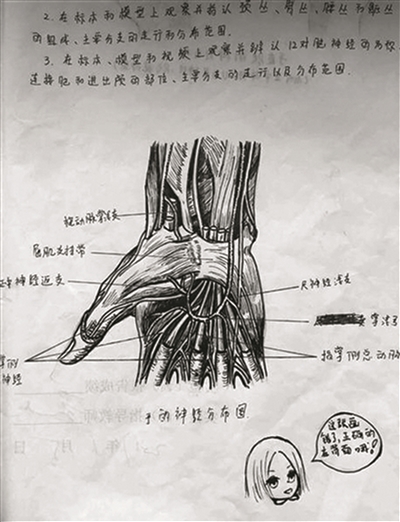 2. 在标本和模型上观察并辨认颈丛、臂丛、腰丛和骶丛
的组成、主要分支的走行和分布范围.
3. 在标本、模型和视频上观察并辨认12对脑神经的名称、
连接脑和进出颅的部位、主要分支的走行以及分布范围.
桡动脉掌浅支
屈肌支持带
正中神经返支
尺神经浅支
掌浅弓
指掌侧总动脉
手的神经分布图
这张画
错了,正确的
在背面哦!